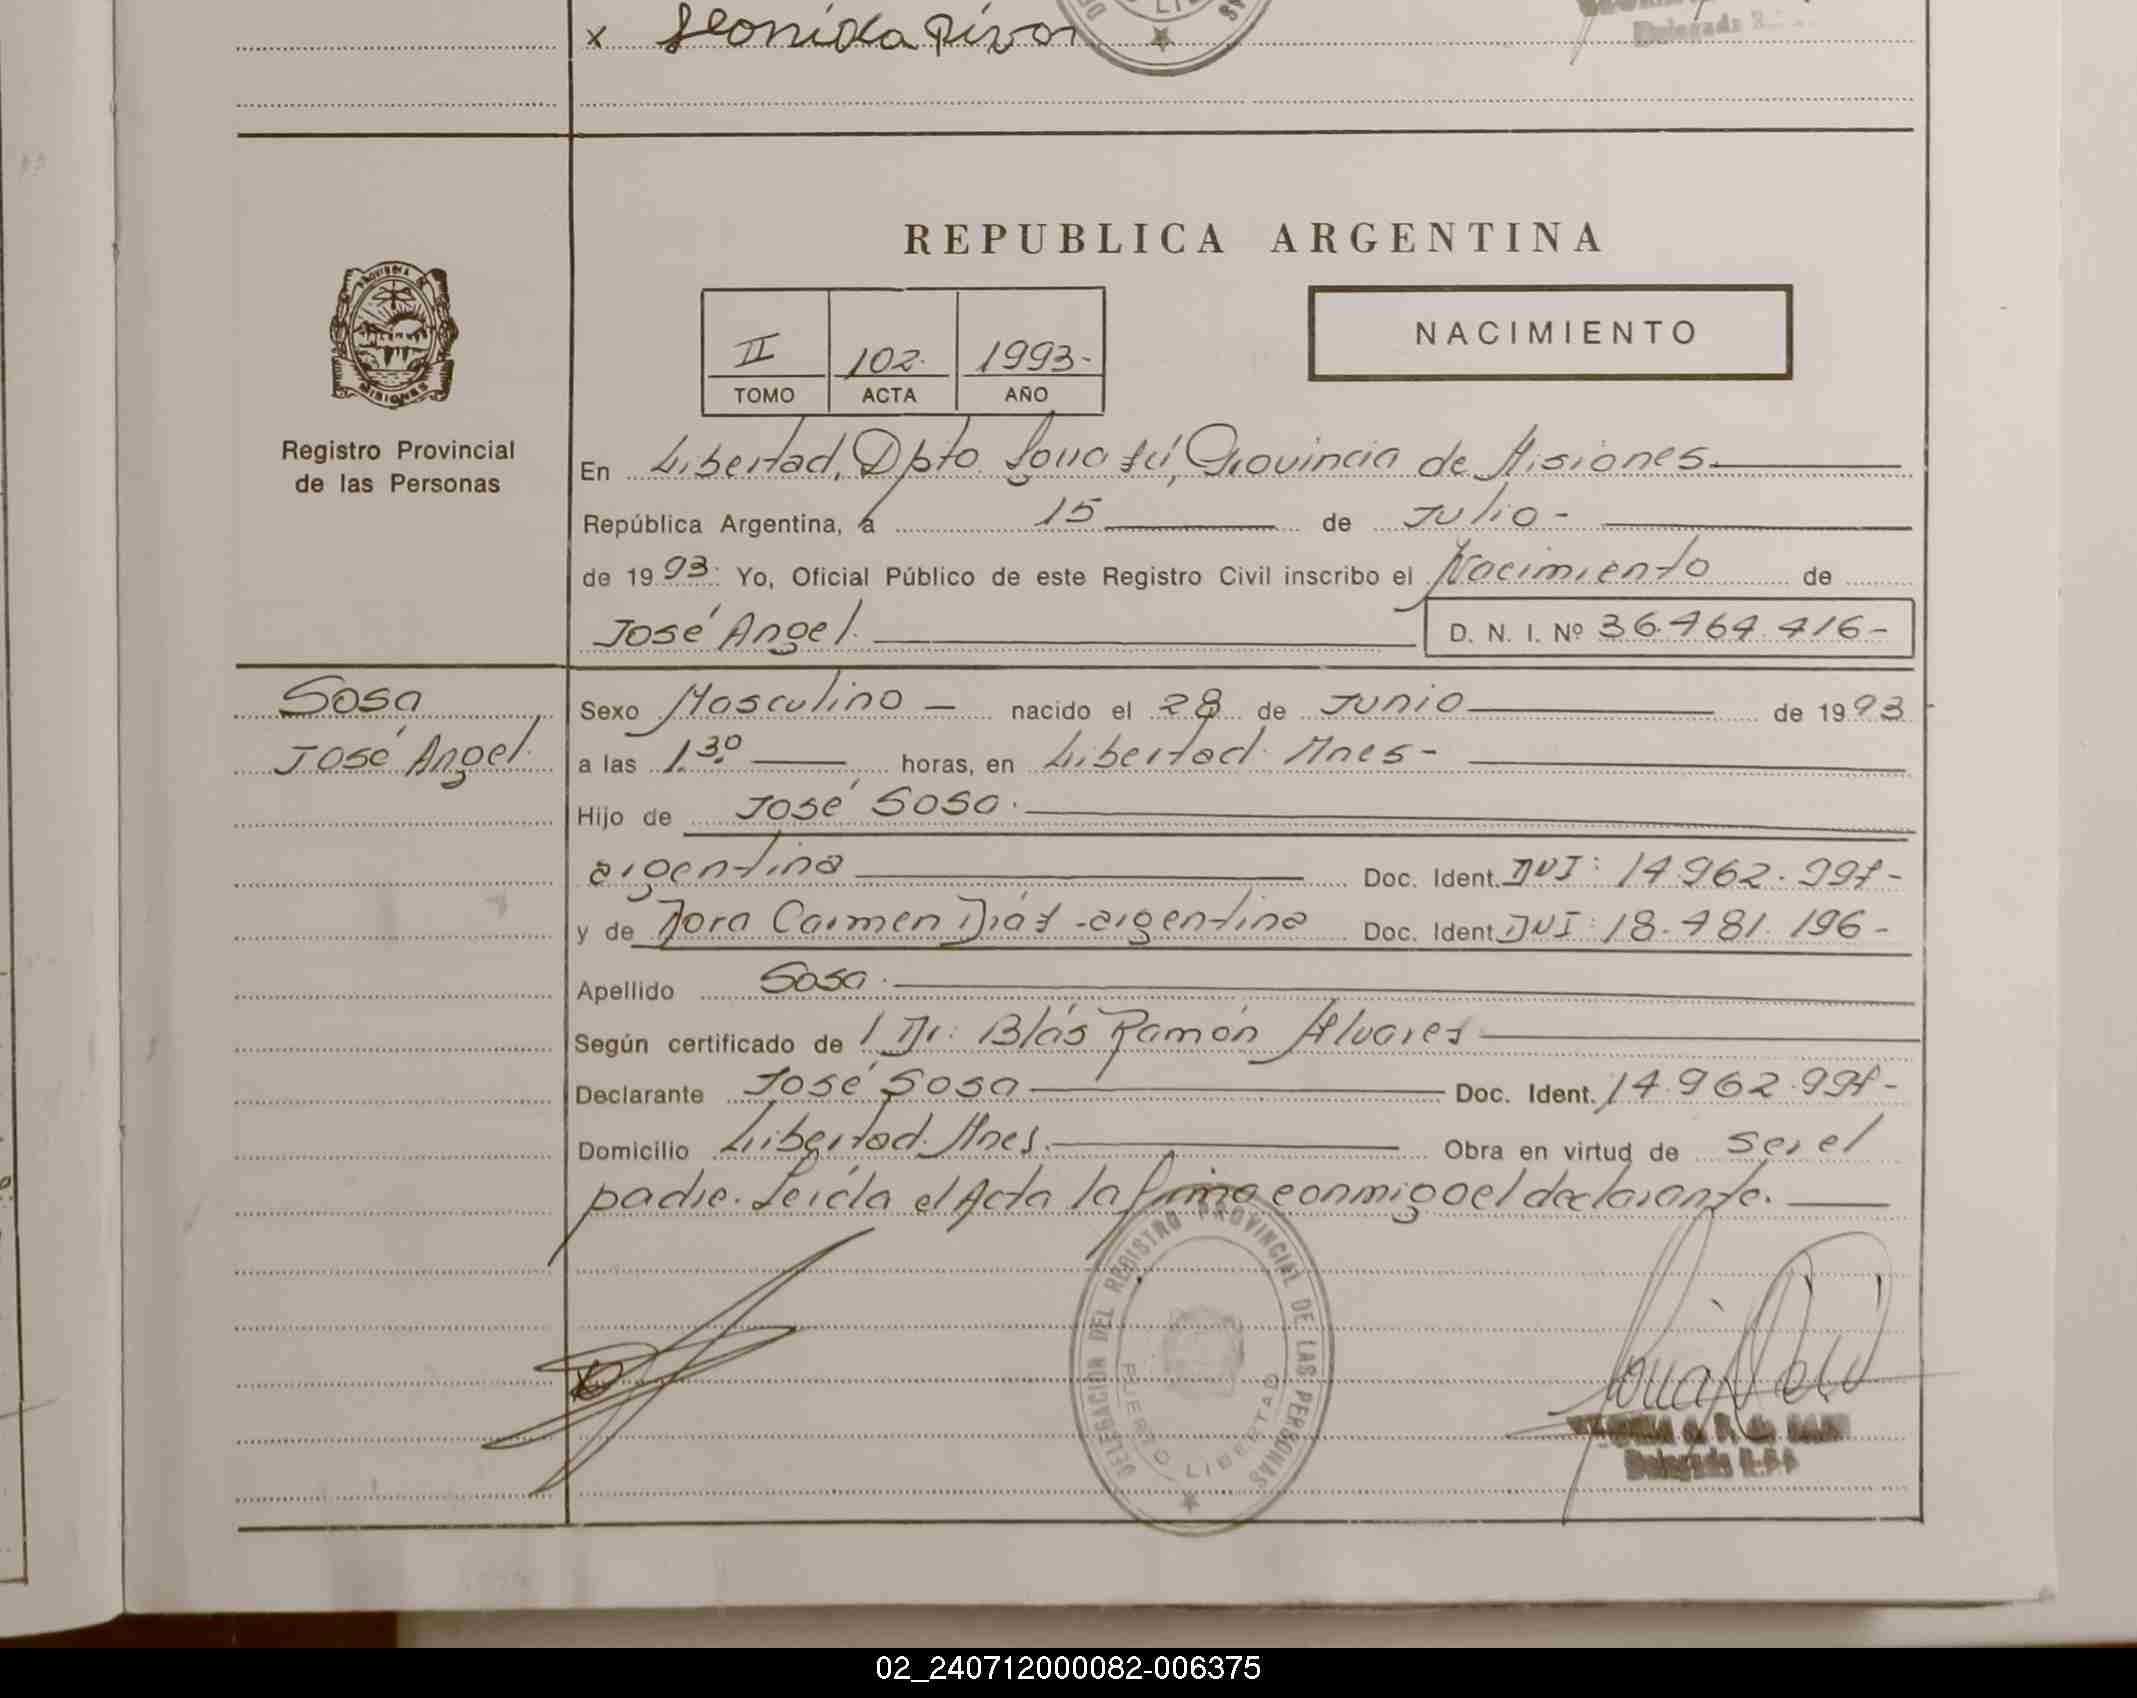 x Leonida Rivar
REPUBLICA ARGENTINA
PROVINCIA
MISIONES
II
102.
1993-
TOMO
ACTA
AÑO
NACIMIENTO
Registro Provincial
de las Personas
En Libertad, Dpto. Iguazú, Provincia de Misiones.
República Argentina, a 15 de Julio -
de 1993. Yo, Oficial Público de este Registro Civil inscribo el Nacimiento de
José Angel.
D. N. I. Nº 36.464.416-
Sosa
José Angel.
Sexo Masculino - nacido el 28 de Junio de 1993
a las 1.30 horas, en Libertad. Mnes-
Hijo de José Sosa.
argentina Doc. Ident. DNI: 14.962.997-
y de Dora Carmen Diáz -argentina Doc. Ident. DNI: 18.481.196-
Apellido Sosa.
Según certificado de l Dr: Blás Ramón Alvares
Declarante José Sosa Doc. Ident. 14.962.997-
Domicilio Libertad. Mnes. Obra en virtud de ser el
padre. Leída el Acta la firma conmigo el declarante.
DELEGACION DEL REGISTRO PROVINCIAL DE LAS PERSONAS
PUERTO LIBERTAD
Delegada R.P.P
02_240712000082-006375